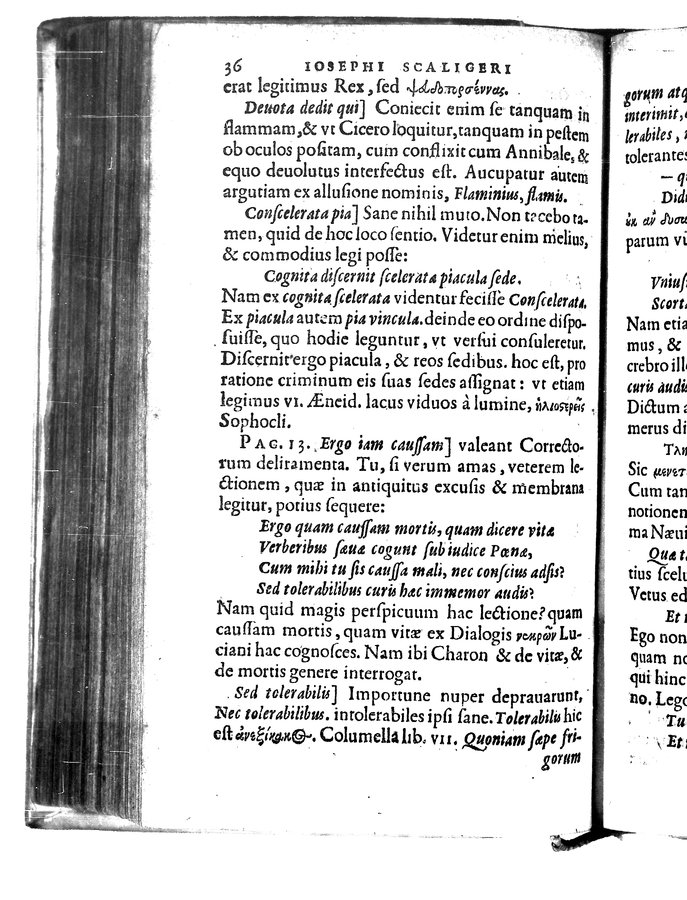 36 IOSEPHI SCALIGERI
erat legitimus Rex, ſed ψευδοπορσέννας.
Deuota dedit qui] Coniecit enim ſe tanquam in
flammam,& vt Cicero loquitur,tanquam in peſtem
ob oculos poſitam, cum conflixit cum Annibale, &
equo deuolutus interfectus eſt. Aucupatur autem
argutiam ex alluſione nominis, Flaminius, flamis.
Conſcelerata pia] Sane nihil muto. Non tacebo ta-
men, quid de hoc loco ſentio. Videtur enim melius,
& commodius legi poſſe:
Cognita diſcernit ſcelerata piacula ſede.
Nam ex cognita ſcelerata videntur feciſſe Conſcelerata.
Ex piacula autem pia vincula. deinde eo ordine diſpo-
ſuiſſe, quo hodie leguntur, vt verſui conſuleretur.
Diſcernit ergo piacula, & reos ſedibus. hoc eſt, pro
ratione criminum eis ſuas ſedes aſſignat: vt etiam
legimus VI. Æneid. lacus viduos à lumine, ἡλιοστερεῖς
Sophocli.
PAG. 13. Ergo iam cauſſam] valeant Correcto-
rum deliramenta. Tu, ſi verum amas, veterem le-
ctionem, quæ in antiquitus excuſis & membrana
legitur, potius ſequere:
Ergo quam cauſſam mortis, quam dicere vitæ
Verberibus ſæuæ cogunt ſub iudice Pœnæ,
Cum mihi tu ſis cauſſa mali, nec conſcius adſis?
Sed tolerabilibus curis hæc immemor audis?
Nam quid magis perſpicuum hac lectione? quam
cauſſam mortis, quam vitæ ex Dialogis νεκρῶν Lu-
ciani hac cognoſces. Nam ibi Charon & de vitæ, &
de mortis genere interrogat.
Sed tolerabilis] Importune nuper deprauarunt,
Nec tolerabilibus. intolerabiles ipſi ſane. Tolerabilis hic
eſt ἀνεξίκακος. Columella lib. VII. Quoniam ſæpe fri-
gorum
gorum atq
interimit,
lerabiles,
tolerantes
— q
Did
ἐκ ἂν δυσα
parum vi
Vniuſ
Scort
Nam etia
mus, &
crebro ill
curis audi
Dictum a
merus di
Τλη
Sic μενετ
Cum tan
notionem
ma Næui
Quæ t
tius ſcel
Vetus ed
Et
Ego non
quam no
qui hinc
no. Lego
Tu
Et